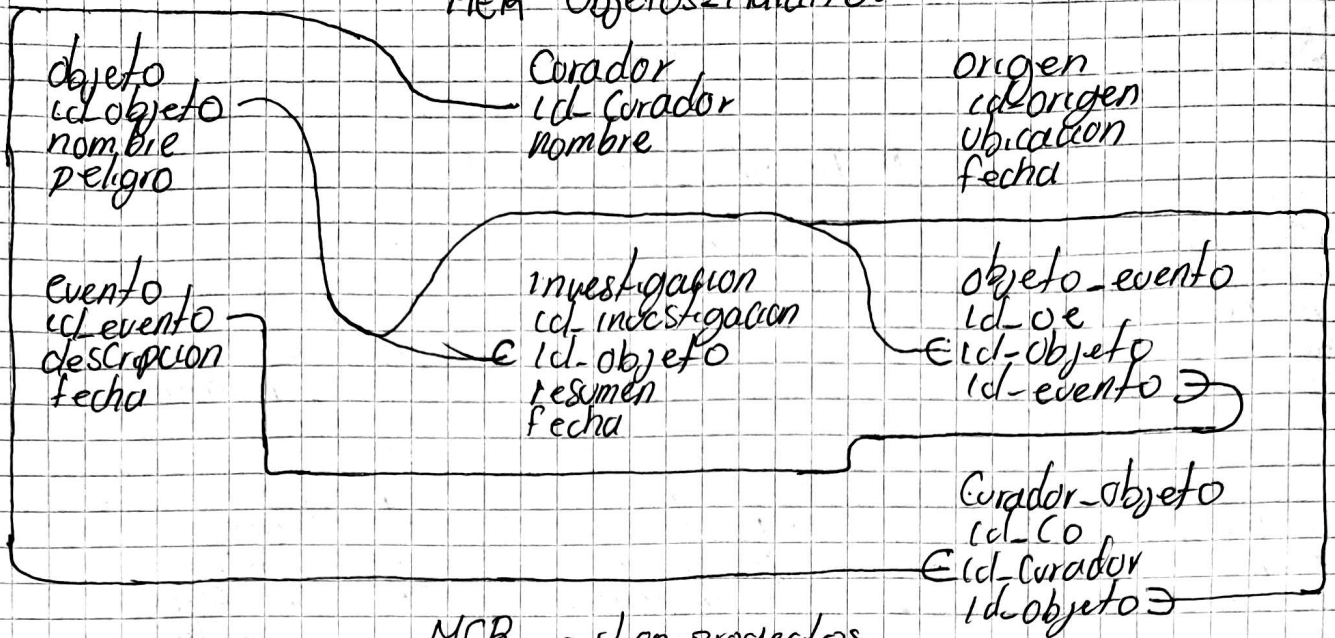 MER
objeto
id_objeto
nombre
peligro
Curador
id_curador
nombre
origen
id_origen
ubicacion
fecha
evento
id_evento
descripcion
fecha
investigacion
id_investigacion
id_objeto
resumen
fecha
objeto_evento
id_oe
id_objeto
id_evento
Curador_objeto
id_co
id_curador
id_objeto
productos